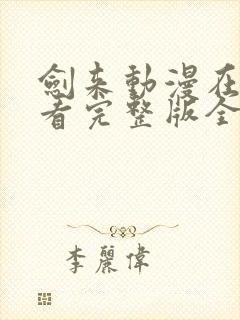 劍来動漫在
看完整版全
李麗偉